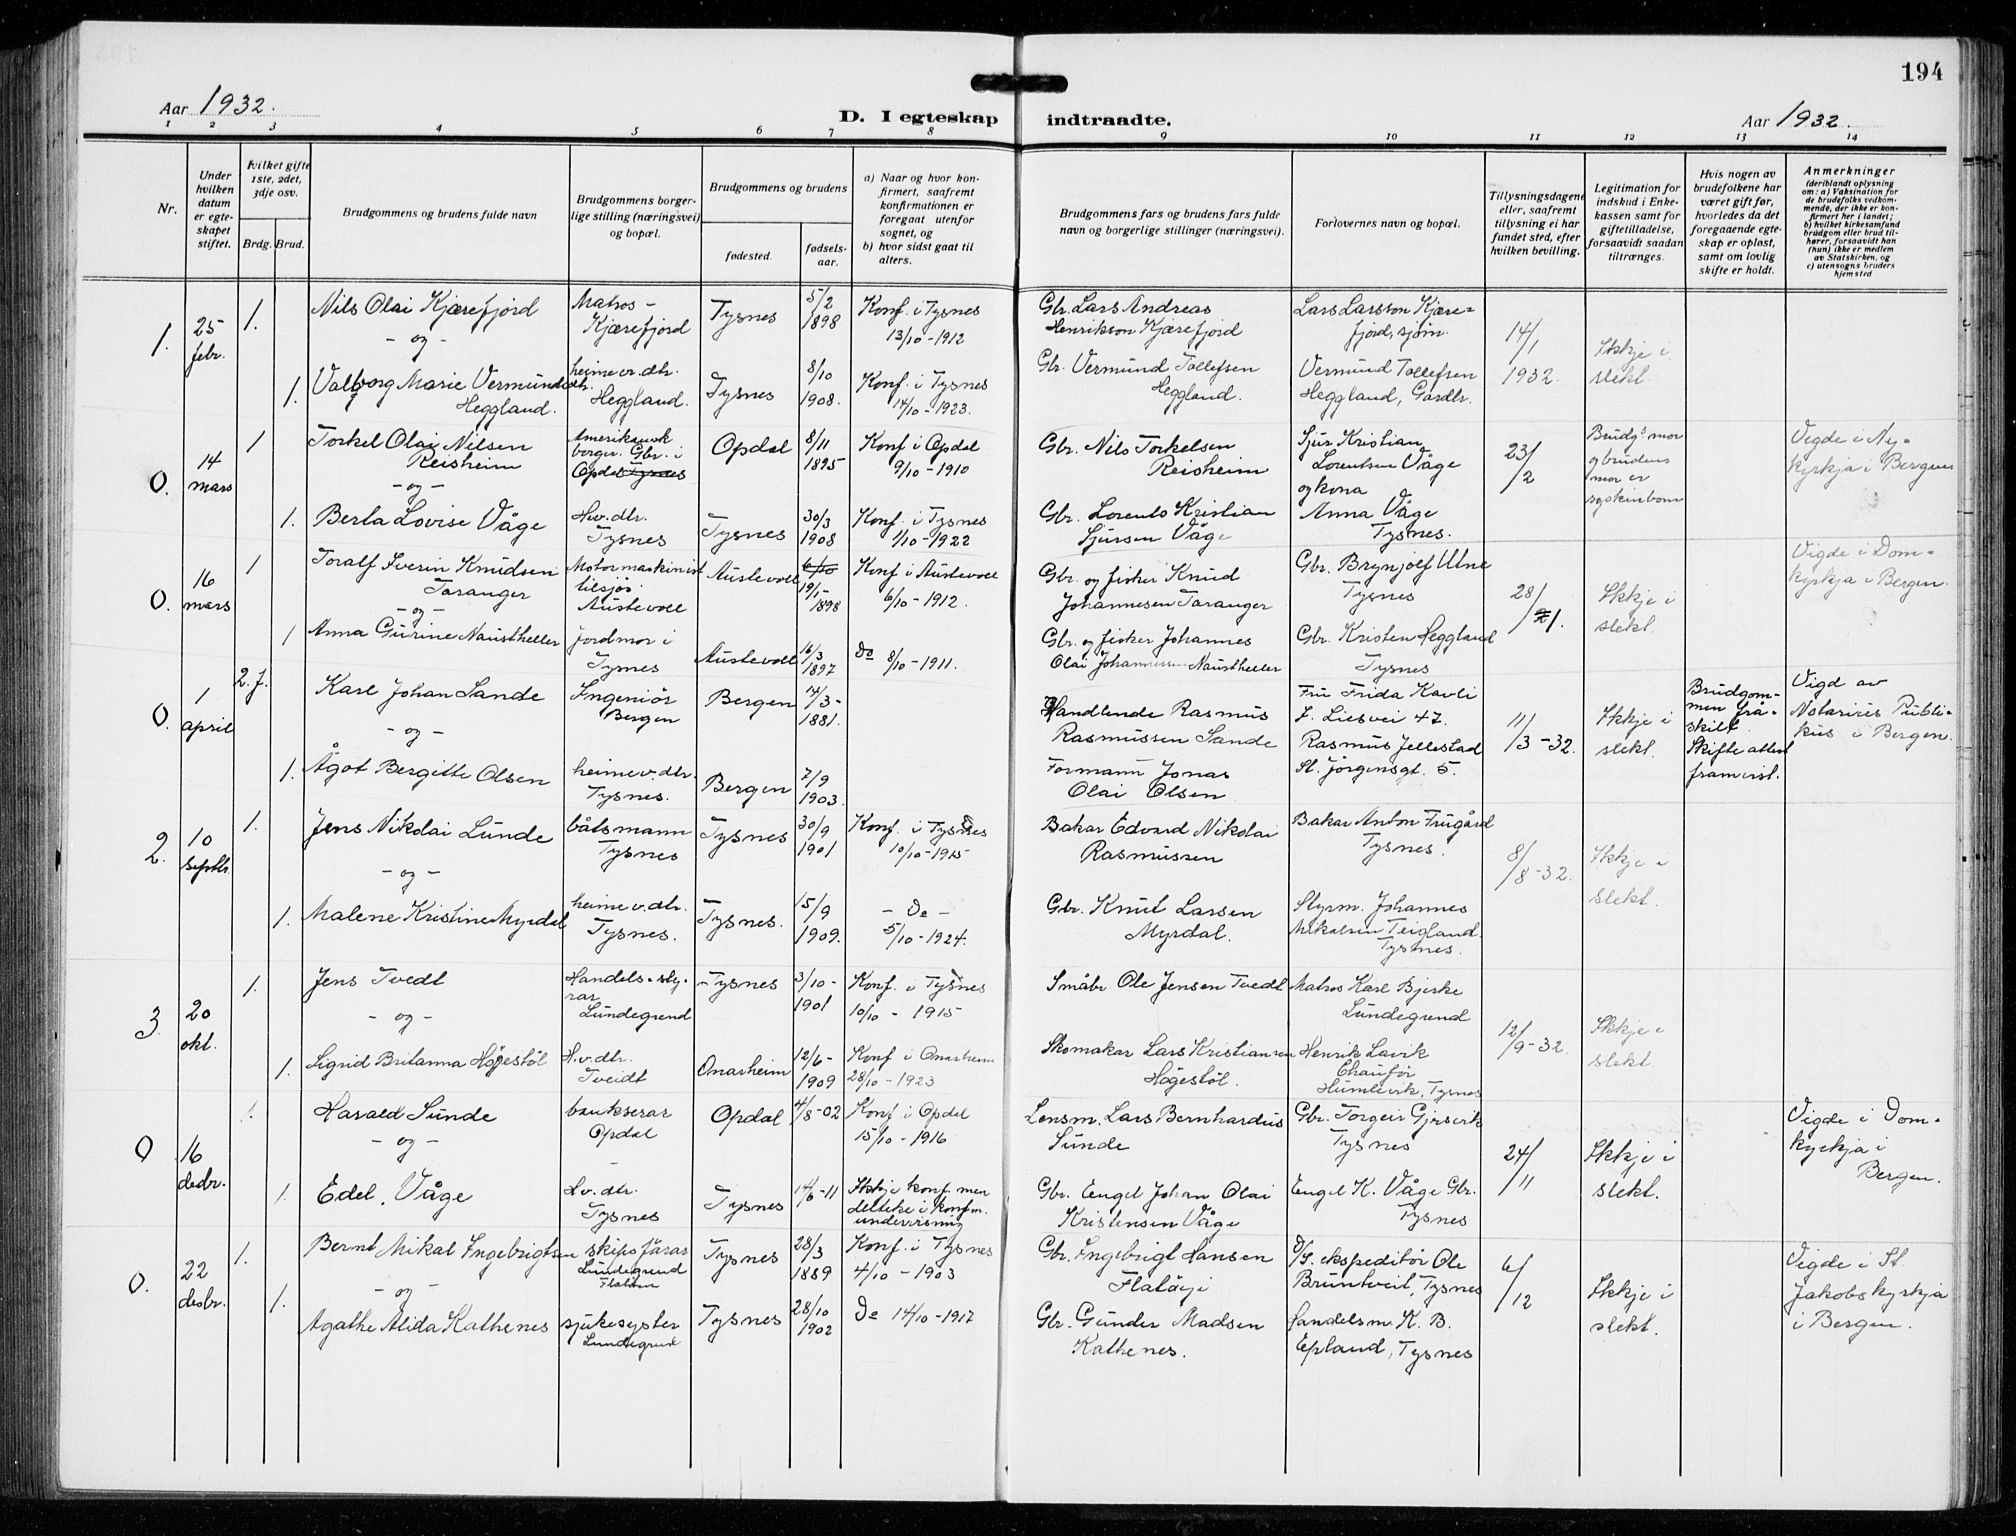 194
Aar 1932.
D. I egteskap indtraadte.
Aar 1932.
1 2 3 4 5 6 7 8 9 10 11 12 13 14
Nr.
Under
hvilken
datum
er egte-
skapet
stiftet.
Hvilket gifte
1ste, 2det,
3dje osv.
Brdg. Brud.
Brudgommens og brudens fulde navn
Brudgommens borger-
lige stilling (næringsvei)
og bopæl.
Brudgommens og brudens
fødested.
fødsels-
aar.
a) Naar og hvor kon-
firmert, saafremt
konfirmationen er
foregaat utenfor
sognet, og
b) hvor sidst gaat til
alters.
Brudgommens fars og brudens fars fulde
navn og borgerlige stillinger (næringsvei).
Forlovernes navn og bopæl.
Tillysningsdagene
eller, saafremt
tillysning ei har
fundet sted, efter
hvilken bevilling.
Legitimation for
indskud i Enke-
kassen samt for
giftetilladelse,
forsaavidt saadan
tiltrænges.
Hvis nogen av
brudefolkene har
været gift før,
hvorledes da det
foregaaende egte-
skap er opløst,
samt om lovlig
skifte er holdt.
Anmerkninger
(deriblandt oplysning
om: a) Vaksination for
de brudefolks vedkom-
mende, der ikke er kon-
firmert her i landet;
b) hvilket kirkesamfund
brudgom eller brud til-
hører, forsaavidt han
(hun) ikke er medlem
av Statskirken, og
c) utensogns bruders
hjemsted
1.
25
febr.
1.
Nils Olai Kjærefjord
- og -
Matros -
Kjærefjord
Tysnes
5/2
1898
Konf. i Tysnes
13/10 - 1912
Gbr. Lars Andreas
Henrikson Kjærefjord
Lars Larsson Kjære-
fjord, sjøm.
14/1
1932.
Ikkje i
slekt.
1.
Valborg Marie Vermunds
dtr. Heggland.
heimev. dtr.
Heggland.
Tysnes
8/10
1908.
Konf. i Tysnes
14/10 - 1923.
Gbr. Vermund Tollefsen
Heggland.
Vermund Tollefsen
Heggland, Gardbr.
0.
14
mars
1
Torkel Olai Nilsen
Reisheim
- og -
Amerikansk
borger. Gbr. i
Opdal Tysnes
Opdal
8/11
1895
Konf i Opdal
9/10 - 1910
Gbr. Nils Torkelsen
Reisheim
Sjur Kristian
Lorentsen Våge
og kona
Anna Våge
Tysnes.
23/2
Brudgs mor
og brudens
mor er
syskinborn
Vigde i Ny-
kyrkja i Bergen
1.
Berta Lovise Våge
Hv. dtr.
Tysnes
Tysnes
30/3
1908
Konf. i Tysnes
1/10 - 1922
Gbr. Lorents Kristian
Sjursen Våge
0.
16
mars
1
Toralf Iverin Knudsen
Taranger
- og -
Motormaskinist
tilsjøs
Austevoll
Austevoll
6/10
19/1-
1898
Konf i Austevoll
6/10 - 1912.
Gbr. og fisker Knud
Johannesen Taranger
Gbr. Brynjolf Ulne
Tysnes
28/1.
Ikkje i
slekt.
Vigde i Dom-
kyrkja i Bergen.
1
Anna Gurine Naustheller
jordmor i
Tysnes
Austevoll
16/3
1897
Do 8/10 - 1911.
Gbr. og fisker Johannes
Olai Johannessen Naustheller
Gbr. Kristen Heggland
Tysnes
0.
1
april
2. f.
Karl Johan Sande
- og -
Ingeniør
Bergen
Bergen
14/3 -
1881.
Handlende Rasmus
Rasmussen Sande
Fru Frida Kavli
J. Liesvei 47.
Rasmus Jellestad
St. Jørgensgt. 5.
11/3 - 32.
Ikkje i
slekt.
Brudgom-
men frå-
skilt.
Skifte attest
framvist.
Vigd av
Notarius Publi-
kus i Bergen.
1.
Ågot Bergitte Olsen
heimev. dtr.
Tysnes.
Bergen
7/9
1903.
Formann Jonas
Olai Olsen
2.
10
septbr.
1.
Jens Nikolai Lunde
- og -
båtsmann
Tysnes
Tysnes
30/9
1901
Konf. i Tysnes
10/10 - 1915
Bakar Edvard Nikolai
Rasmussen
Bakar Anton Frugård
Tysnes.
8/8 - 32.
Ikkje i
slekt.
1.
Malene Kristine Myrdal
heimev. dtr.
Tysnes.
Tysnes.
15/9
1909.
- Do -
5/10 - 1924.
Gbr. Knut Larsen
Myrdal.
Styrm. Johannes
Mikalsen Teigland.
Tysnes.
3.
20
okt.
1.
Jens Tvedt
- og -
Handels-sty-
rar
Lundegrend
Tysnes
3/10 -
1901
Konf. i Tysnes
10/10 - 1915
Småbr. Ole Jensen Tvedt
Matros Karl Bjerke
Lundegrend
12/9 - 32.
Ikkje i
slekt
1.
Sigrid Britanna Høgestøl
H.v. dtr.
Tveidt
Onarheim
12/6 -
1909
Konf i Onarheim
28/10 - 1923
Skomakar Lars Kristiansen
Høgestøl.
Henrik Lavik
Chaufør
Humlevik, Tysnes
0
16
desbr.
1.
Harald Sunde
- og -
baukserar
Opdal
Opdal
4/8 - 02
Konf i Opdal
15/10 - 1916
Lensm. Lars Bernhardus
Sunde
Gbr. Torgeir Gjersvik
Tysnes
24/11
Ikkje i
slekt.
Vigde i Dom-
kyrkja i
Bergen.
1.
Edel Våge
H.v. dtr.
Tysnes
Tysnes
14/6 - 11
Ikkje konf. men
delteke i konfm.
undervisning
Gbr. Engel Johan Olai
Kristensen Våge
Engel K. Våge Gbr.
Tysnes
0.
22
desbr.
1.
Bernt Mikal Ingebrigtsen
- og -
skipsførar
Lundegrend
Tysnes
28/3
1889
Konf. i Tysnes
4/10 - 1903
Gbr. Ingebrigt Hansen
Flatøy
D/S. ekspeditør Ole
Bruntveit, Tysnes
6/12
Ikkje i
slekt.
Vigde i St.
Jakobskyrkja
i Bergen.
1.
Agathe Alida Kathenes
sjukesyster
Lundegrend
Tysnes
28/10
1902
Do 14/10 - 1917
Gbr. Gunder Madsen
Kathenes.
Handelsm. K. B.
Epland, Tysnes